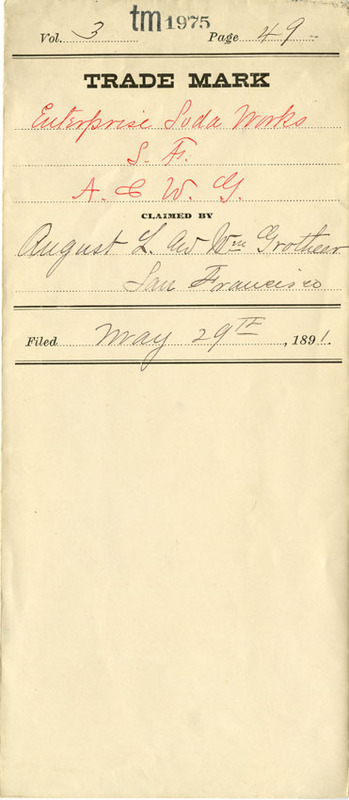 tm 1975
Vol. 3 Page 49
TRADE MARK
Enterprise Soda Works
S. F.
A. & W. G.
CLAIMED BY
August L. Wm Grothear
San Francisco
Filed May 29TH, 1891.